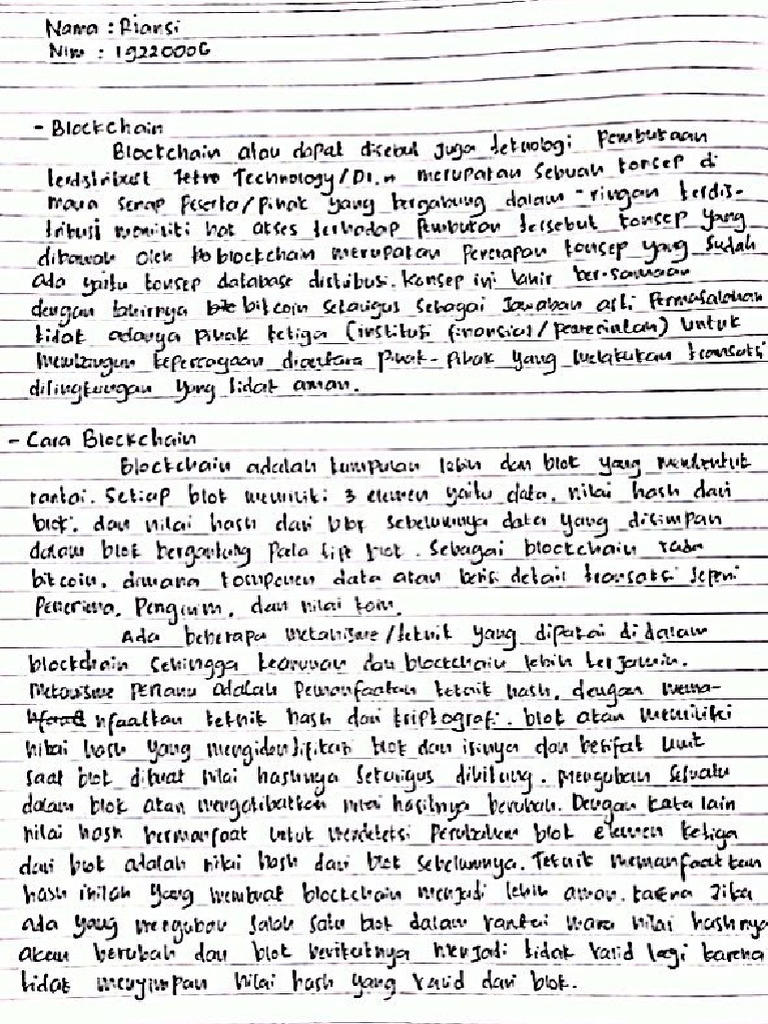 Nama : Riansi
Nim : 19220006
- Blockchain
Blockchain atau dapat disebut juga teknologi Pembukaan
Technology/ merupakan sebuah konsep di
mana setiap peserta/pihak yang bergabung dalam -ringan terdis-
tribusi memiliki hak akses terhadap pembukuan tersebut konsep yang
dibawah oleh blockchain merupakan penerapan konsep yang sudah
ada yaitu konsep database distribusi. Konsep ini lahir bersamaan
dengan lahirnya bitcoin sekaligus sebagai Jawaban Permasalahan
tidak adanya pihak ketiga (institusi finansial/pemerintah) untuk
membangun kepercayaan diantara pihak-pihak yang melakukan transaksi
dilingkungan yang tidak aman.
- Cara Blockchain
Blockchain adalah kumpulan lebih dari blok yang membentuk
rantai. Setiap blok memiliki 3 elemen yaitu data, nilai hash dari
blok, dan nilai hash dari blok sebelumnya data yang disimpan
dalam blok bergantung pada . Sebagai blockchain pada
bitcoin, dimana komponen data akan berisi detail transaksi seperti
Penerima, Pengirim, dan nilai koin.
Ada beberapa mekanisme/teknik yang dipakai didalam
blockchain sehingga keamanan dan blockchain lebih terjamin.
Mekanisme pertama adalah Pemanfaatan teknik hash, dengan mema-
nfaatkan teknik hash dari kriptografi. blok akan memiliki
nilai hash yang mengidentifikasi blok dan isinya dan besifat unik
saat blok dibuat nilai hashnya sekaligus dihitung. Mengubah sesuatu
dalam blok akan mengakibatkan nilai hasilnya berubah. Dengan kata lain
nilai hash bermanfaat untuk mendeteksi perubahan blok elemen ketiga
dari blok adalah nilai hash dari blok sebelumnya. Teknik memanfaatkan
hash inilah yang membuat blockchain menjadi lebih aman. karena Jika
ada yang mengubah salah satu blok dalam rantai maka nilai hashnya
akan berubah dan blok berikutnya menjadi tidak valid lagi karena
tidak menyimpan nilai hash yang valid dari blok.